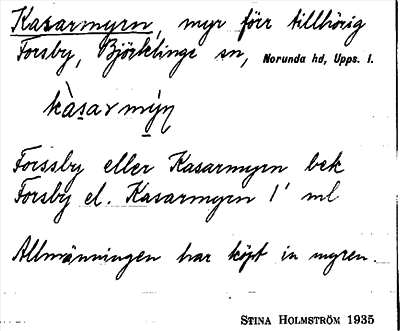 Kasarmyrn, myr förr tillhörig
Forsby, Björklinge sn, Norunda hd, Upps. l.
kàsarmýn
Forssby eller Kasarmyrn bek
Forsby el. Kasarmyrn 1' ml
Allmänningen har köpt in myren.
STINA HOLMSTRÖM 1935